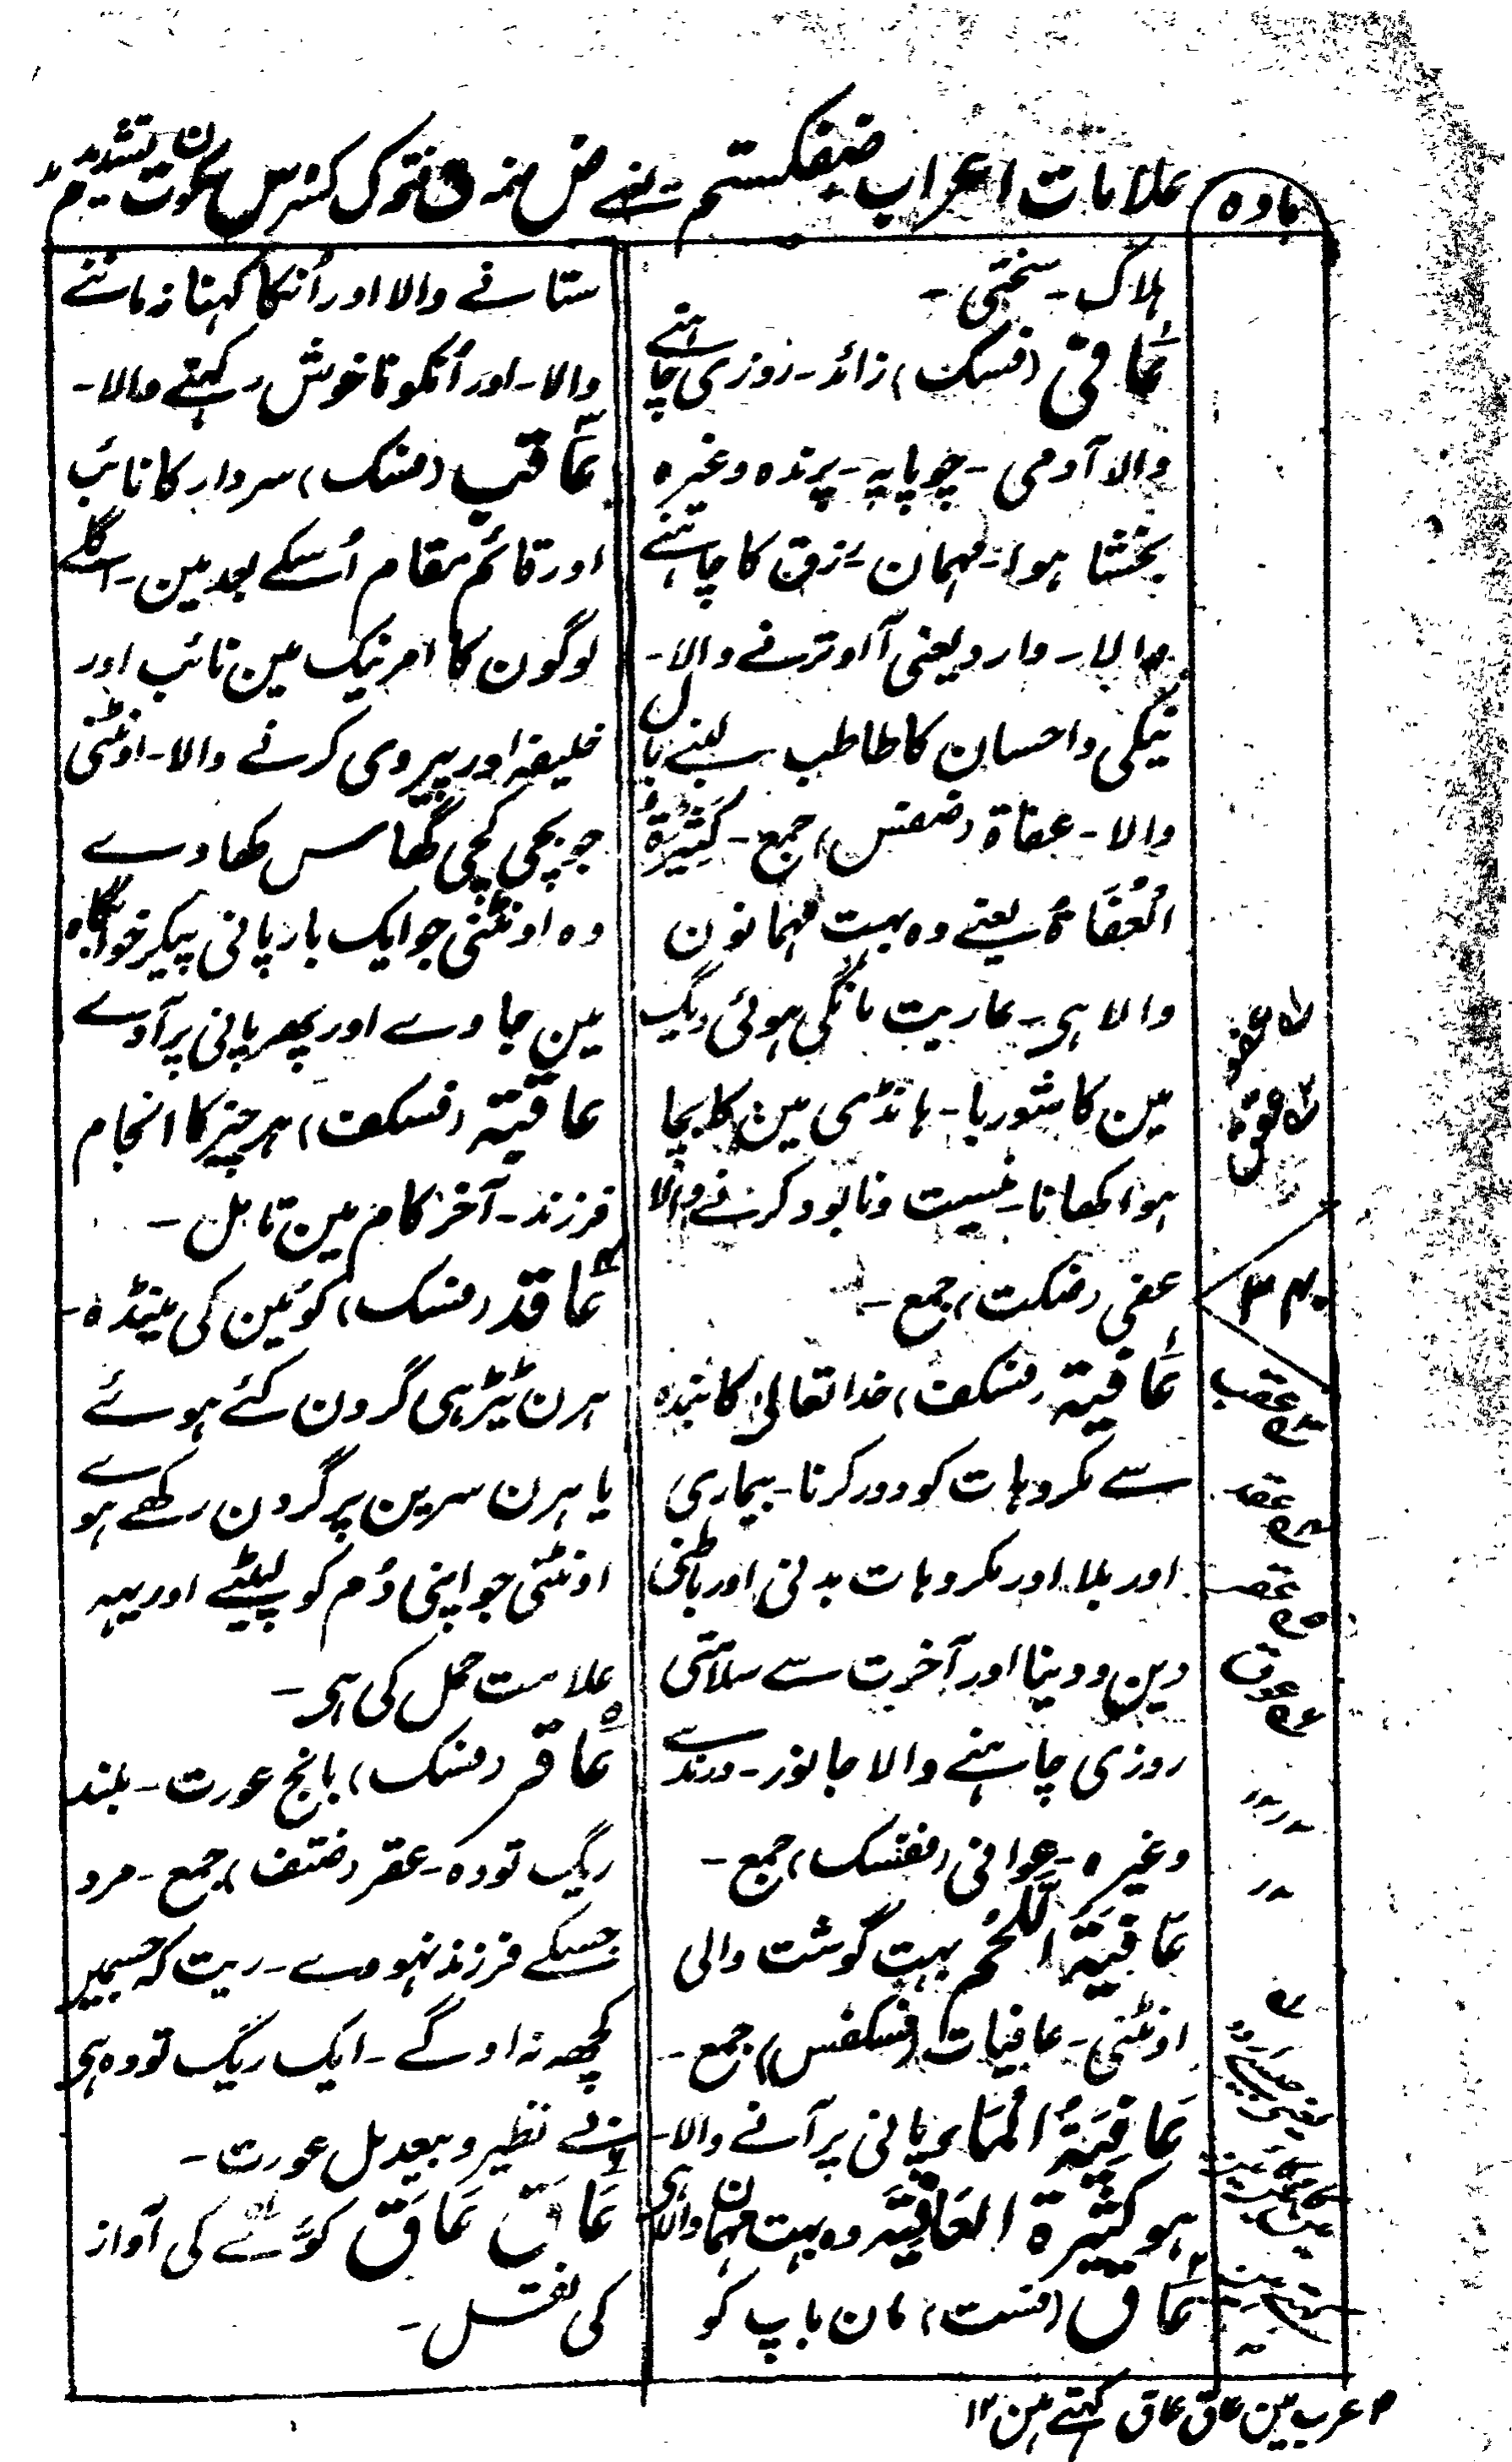 مادہ
علامات اعراب ضفکستم یعنے ض ضمہ ف فتحہ ک کسرہ س سکون ت تشدید م مد
ہلاک - سختی -
عَافی (فسک) زائد - روزی چاہنے
والا آدمی - چوپایہ - پرندہ وغیرہ
بخشا ہوا - مہمان - رزق کا چاہنے
والا - وارد یعنی آ اوترنے والا -
نیکی و احسان کا طالب - لنبے بال
والا - عفاۃ (ضفس) جمع - کَثِیْرَۃُ
الْعُفَاۃُ یعنے وہ بہت مہمانون
والا ہی - عاریت مانگی ہوئی دیگ
مین کا شوربا - ہانڈی مین کا بچا
ہوا کھانا - نیست و نابود کرنے والا
عفی (ضکت) جمع -
عَافیۃ (فسکف) خدا تعالیٰ کا بندہ
سے مکروہات کو دور کرنا - بیماری
اور بلا اور مکروہات بدنی اور باطنی
دین و دینا اور آخرت سے سلامتی
روزی چاہنے والا جانور - درندے
وغیرہ - عوافی (ففسک) جمع -
عَافِیَۃُ اللَّحْم بہت گوشت والی
اونٹنی - عافیات (فسکفس) جمع -
عَافِیَۃُ الْمَاء پانی پر آنے والا -
ہو کَثِیْرۃ العَافِیَۃ وہ بہت مہمان والا ہی
عَاق (فست) مان باپ کو
ستانے والا اور اُنکا کہنا نہ ماننے
والا - اور اُنکو ناخوش رکہنے والا -
عَاقب (فسک) سردار کا نائب
اور قائم مقام اُسکے بعد مین - اگلے
لوگون کا امر نیک مین نائب اور
خلیفہ اور پیروی کرنے والا - اونٹنی
جو بچی کچی گھاس کھاوے
وہ اونٹنی جو ایک بار پانی پیکر خوابگاہ
مین جاوے اور پھر پانی پر آوے
عاقبۃ (فسکف) ہر چیز کا انجام
فرزند - آخر کام مین تامل -
عَاقد (فسک) کوئین کی مینڈہ -
ہرن ٹیڑہی گردن کئے ہوئے
یا ہرن سرین پر گردن رکھے ہوے
اونٹنی جو اپنی دُم کو لپیٹے اور یہہ
علامت حمل کی ہی -
عَاقر (فسک) بانج عورت - بلند
ریگ تودہ - عقر (ضتف) جمع - مرد
جسکے فرزند نہووے - ریت کہ جسمیں
کچھہ نہ اوگے - ایک ریگ تودہ ہی
بے نظیر و بیعدیل عورت -
عَاق عَاق کوّے کی آواز
کی نقل -
عفو
عقق
عقب
عقد
عقر
عوق
عرب مین عاق عاق کہتے ہین ۱۲